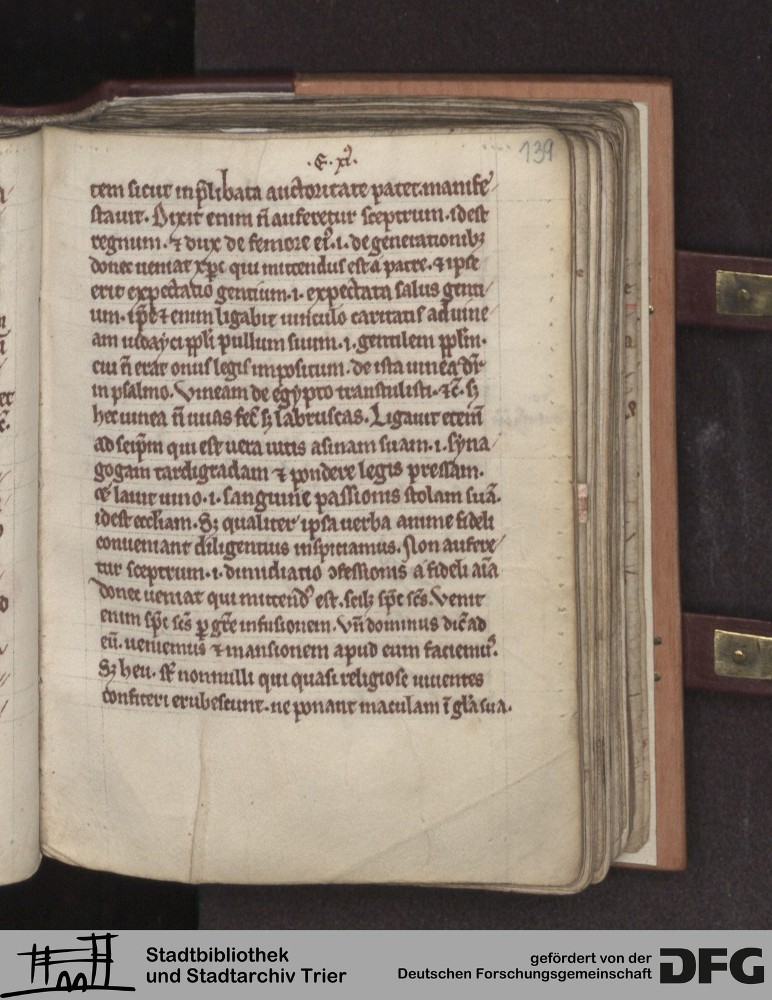 .E. xi.
139
tem sicut in p̄libata auctoritate patet. manife
stauit. Dixit enim n̄ auferetur sceptrum. idest
regnum. ⁊ dux de femore ei᷒. i. de generationib;
donec ueniat xp̄c qui mittendus est a patre. ⁊ ipse
erit expectatio gentium. i. expectata salus genti
um. ip̄e etenim ligabit uinculo caritatis ad uine
am iudayci pp̄li pullum suum. i. gentilem pp̄lm.
cui n̄ erat onus legis impositum. de ista uinea dr̄
in psalmo. Vineam de egypto transtulisti. ⁊c̄. s;
hec uinea n̄ uuas fec̄ s; labruscas. Ligauit etenī
ad seip̄m qui est uera uitis asinam suam. i. syna
gogam tardigradam ⁊ pondere legis pressam.
lauit uino. i. sanguine passionis stolam suā.
idest eccl̄iam. S; qualiter ipsa uerba anime fideli
conueniant diligentius inspiciamus. Non aufere
tur sceptrum. i. dimidiatio ɔfessionis a fideli aīa
donec ueniat qui mittend᷒ est. scil; sp̄c sc̄s. Venit
enim sp̄c sc̄s p gr̄e infusionem. Vn̄ dominus dic̄ ad
eū. ueniemus ⁊ mansionem apud eum faciem᷒.
S; heu. st̄ nonnulli qui quasi religiose uiuentes
confiteri erubescunt. ne ponant maculam ī gl̄a sua.
Stadtbibliothek
und Stadtarchiv Trier
gefördert von der
Deutschen Forschungsgemeinschaft
DFG